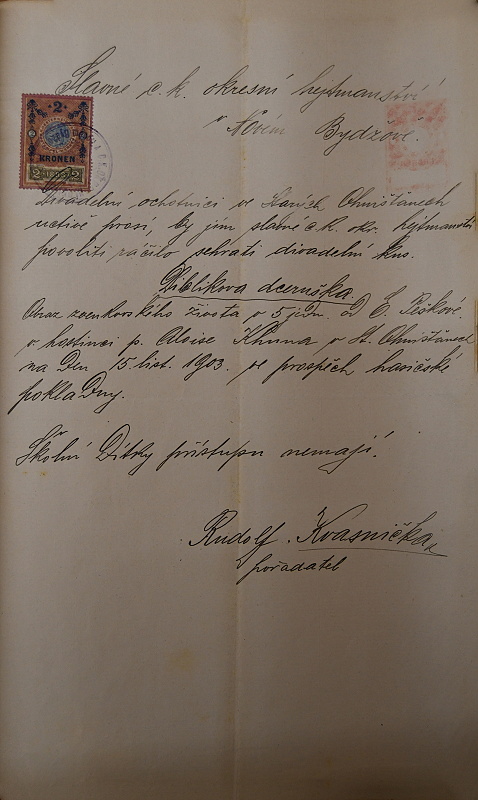 Slavné c. k. okresní hejtmanství
v Novém Bydžově.
2
KRONEN
2 1898 2
Divadelní ochotníci ve Starých Ohništanech
uctivě prosí, by jim slavné c. k. okr. hejtmanství
povoliti ráčilo sehráti divadelní kus.
Kiblíkova dceruška.
Obraz z venkovského života v 5 jedn. od E. Peškové.
v hostinci p. Aloise Khuna v St. Ohništanech
na Den 15. list. 1903. ve prospěch hasičské
poklaDny.
Školní Dítky přístupu nemají.
Rudolf Kvasnička
pořadatel